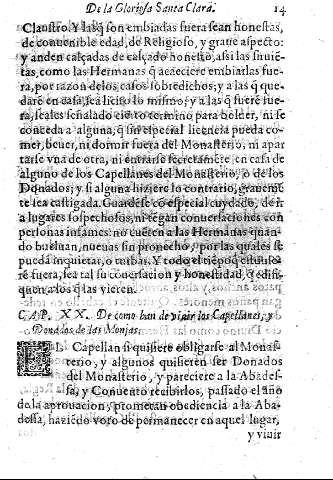 De la Gloriosa Santa Clara. 14
Claustro. Y las q̃ son embiadas fuera sean honestas,
de conuenible edad, de Religioso, y graue aspecto:
y anden calçadas de calçado honesto, assi las siruiẽ-
tas, como las Hermanas q̃ acaeciere embiarlas fue-
ra, por razon de los casos sobredichos; y a las q̃ que-
darẽ en casa, sea licito lo mismo; y a las q̃ fuerẽ fue-
ra, seales señalado cierto termino para boluer, ni se
conceda a alguna, q̃ sin especial licencia pueda co-
mer, beuer, ni dormir fuera del Monasterio, ni apar
tarse vna de otra, ni entrarse secretamẽte en casa de
alguno de los Capellanes del Monasterio, o de los
Donados; y si alguna hiziere lo contrario, grauemẽ
te sea castigada. Guardese cõ especial cuydado, de ir
a lugares sospechosos, ni tẽgan conuersaciones con
personas infames: no cuẽten a las Hermanas quan-
do bueluan, nueuas sin prouecho, por las quales se
pueda inquietar, o turbar. Y todo el tiẽpo q̃ estuuie-
rẽ fuera, sea tal su cõuersacion y honestidad, q̃ edifi-
quen a los q̃ las vieren.
CAP. XX. De como han de viuir los Capellanes, y
Donados de las Monjas.
EL Capellan si quisiere obligarse al Monas-
terio, y algunos quisieren ser Donados
del Monasterio, y pareciere a la Abades-
sa, y Conuento recibirlos, passado el año
de la aprouacion, prometan obediencia a la Aba-
dessa, haziẽdo voto de permanecer en aquel lugar,
y viuir